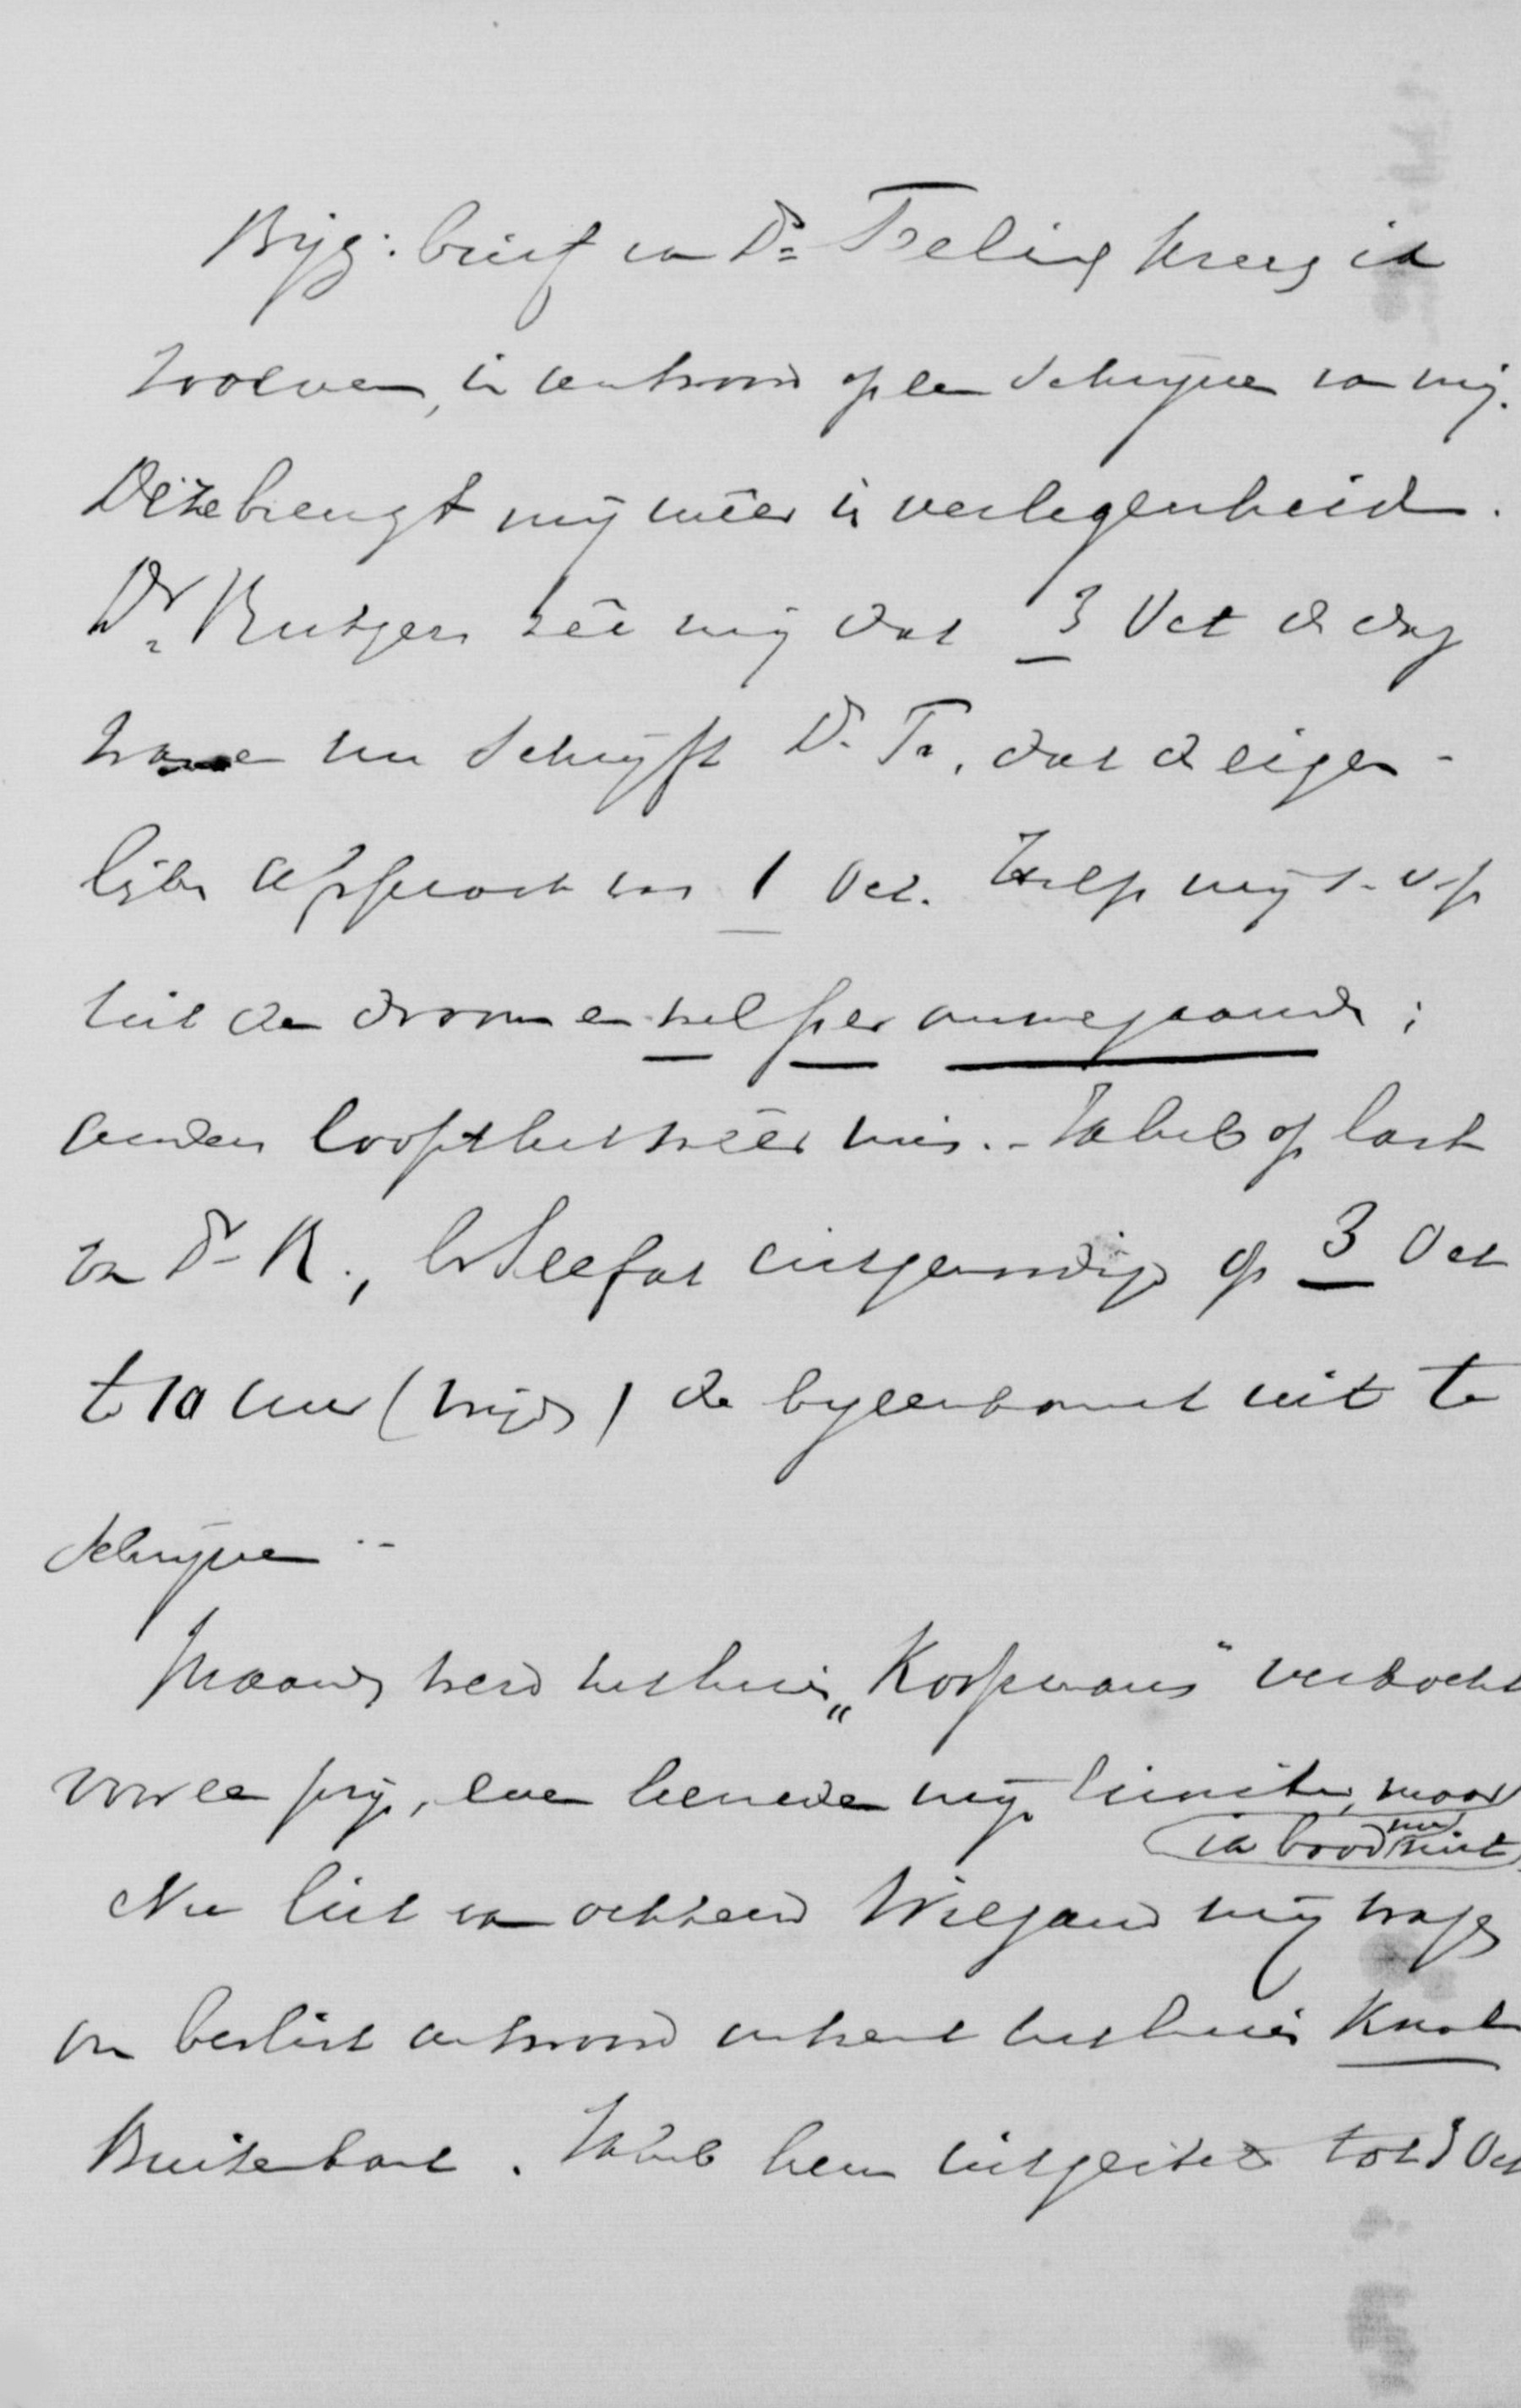 Bijg: brief van Dr Treling kreeg ik
zooeven, in antwoord op een schrijven van mij.
Deze brengt mij weer in verlegenheid.
Dr Rutgers zei mij dat 3 Oct de dag
was en nu schrijft Dr. Tr. dat de eigen-
lijke afspraak was 1 Oct. Help mij s.v.p
uit den droom en wel per omnegaande;
anders loopt het weer mis. - Ik heb op last
van Dr R., br Seefat uitgenoodigd op 3 Oct
te 10 uur (vrijd) de bijeenkomst uit te
schrijven. -
Maand werd het huis „Koopmans" verkocht
voor een prijs, even beneden mijn limite, maar
ik bood nu niet
Nu liet van ochtend Wiegand mij vragen
om beslist antwoord omtrent het huis Knol
Buitenkant. Ik heb hem uitgesteld tot 3 Oct